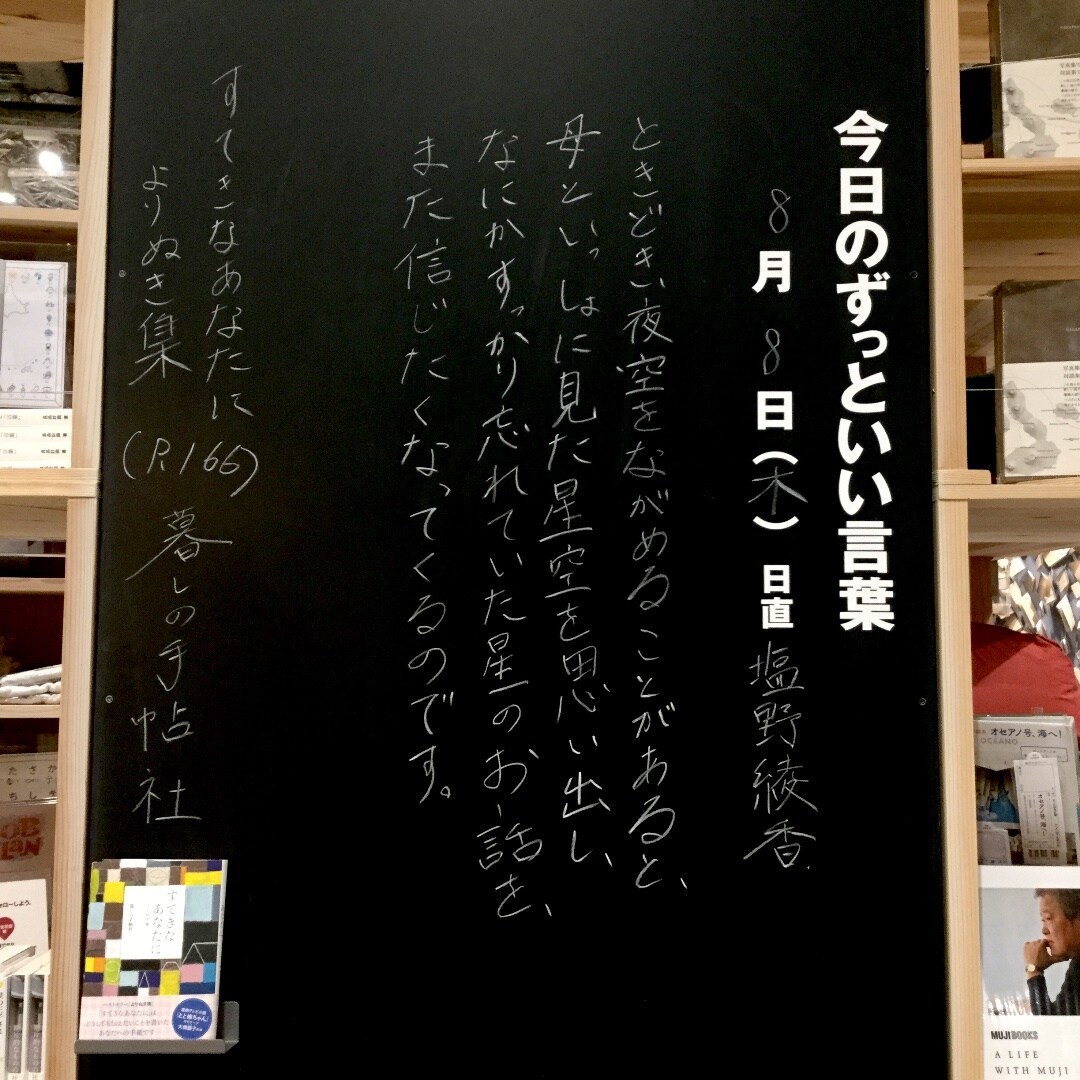 今日のずっといい言葉
8月8日(木) 日直 塩野綾香
ときどき夜空をながめることがあると、
母といっしょに見た星空を思い出し、
なにかすっかり忘れていた星のお話を、
また信じたくなってくるのです。
すてきなあなたに
よりぬき集
(P.166) 暮しの手帖社
すてきな
あなたに
オセアノ号、海へ!
OCEANO
オセアノ号、海へ!
MUJI BOOKS
A LIFE
WITH MUJI